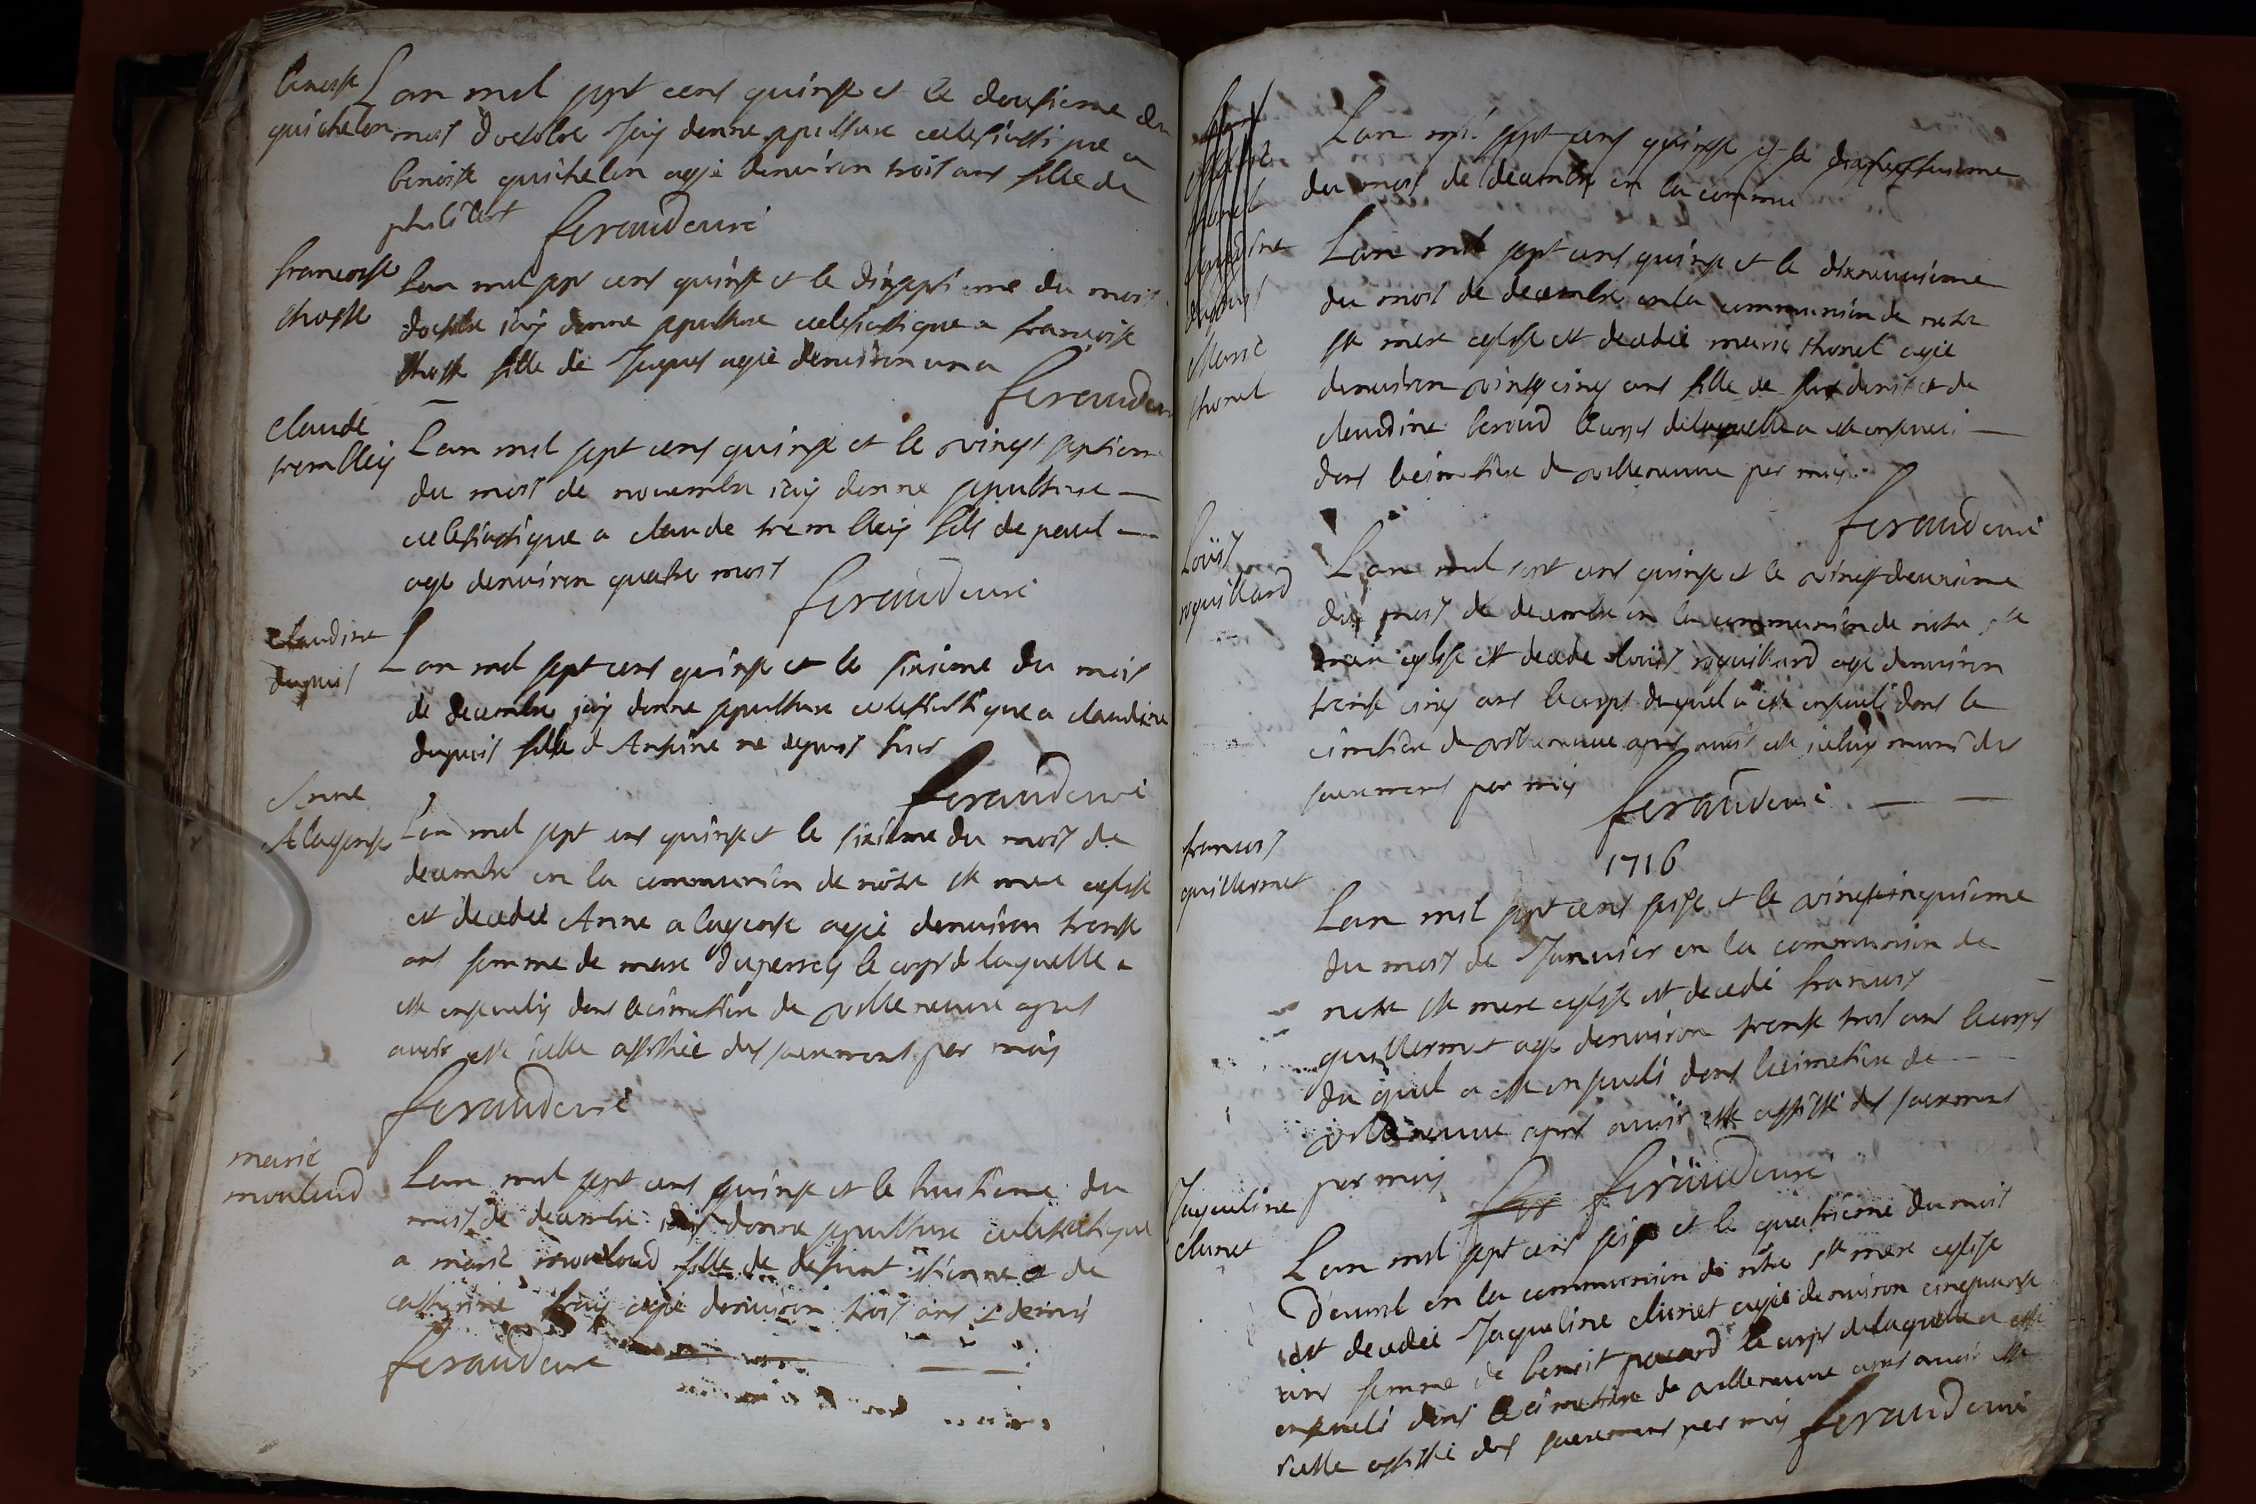 benoiste
guichelon
Lan mil sept cens quinse et le dousieme du
mois d'octobre Jay donne sepulture ecclesiastique a
benoiste guichelon agée denviron trois ans fille de
philibert
feraud curé
francoise
chosse
Lan mil sept cens quinse et le dixseptieme du mois
doctobre jay donne sepulture ecclesiastique a francoise
fille de Jaques agée denviron un a
feraud cu
claude
trembley
Lan mil sept cens quinse et le vingt septiem
du mois de novembre jay donne sepulture
ecclesiastique a claude trembley fils de paul
age denviron quatre mois
feraud curé
claudine
dupuis
Lan mil sept cens quinse et le sixieme du mois
de decembre jay donne sepulture ecclesiastique a claudine
dupuis fille d Antoine ne depuis hier
feraud curé
Anne
Alagorse
Lan mil sept cens quinse et le sixieme du mois de
decembre en la communion de nôtre ste mere eglise
est decedée Anne alagorse agée denviron trense
ans femme de marc duperrey le corps de laquelle a
este ensevely dans le cimetiere de villeneuve apres
avoir esté icelle assistée des sacremens par moy
feraud curé
marie
mouloud
Lan mil sept cens quinse et le huitieme du
mois de decembre jay donne sepulture ecclesiastique
a marie mouloud fille de defunt etienne et de
catherine agée denviron trois ans et demis
feraud curé
claudine
dupuis
Marie
thonet
Lan mil sept cens quinse et le
du mois de decembre en la commu
Lan mil sept cens quinse et le dixneuvieme
du mois de decembre en la communion de nostre
ste mere eglise est decedée marie thonet agée
denviron vingt cinq ans fille de feu denis et de
claudine beroud le corps de laquelle a esté enseveli
dans le cimetiere de villeneuve par moy
feraud curé
Loüis
roquillard
Lan mil sept cens quinse et le vingt deuxieme
du mois de decembre en la communion de notre ste
mere eglise est decede loüis roquillard age denviron
trense cinq ans le corps duquel a esté enseveli dans le
cimetiere de villeneuve apres avoir esté iceluy muni des
sacremens par moy
feraud curé
1716
francois
guillermet
Lan mil sept cens seise et le vingtcinquieme
du mois de Janvier en la communion de
notre ste mere eglise est decedé francois
guillermet age denviron trense trois ans le corps
du quel a esté enseveli dans le cimetiere de
villeneuve apres avoir esté assisté des sacremens
par moy
feraud curé
Jaqueline
clunet
Lan mil sept cens seise et le quatrieme du mois
d'avril en la communion de notre ste mere eglise
est decedée Jaqueline clunet agée denviron cinquante
ans femme de benoit pacard le corps de laquelle a esté
enseveli dans le cimetiere de villeneuve apres avoir esté
icelle assistée des sacremens par moy
feraud curé